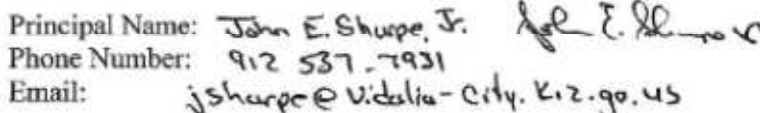 Principal Name: John E. Sharpe, Jr. John E. Sharpe Jr
Phone Number: 912 537-7931
Email: jsharpe@vidalia-city.k12.ga.us